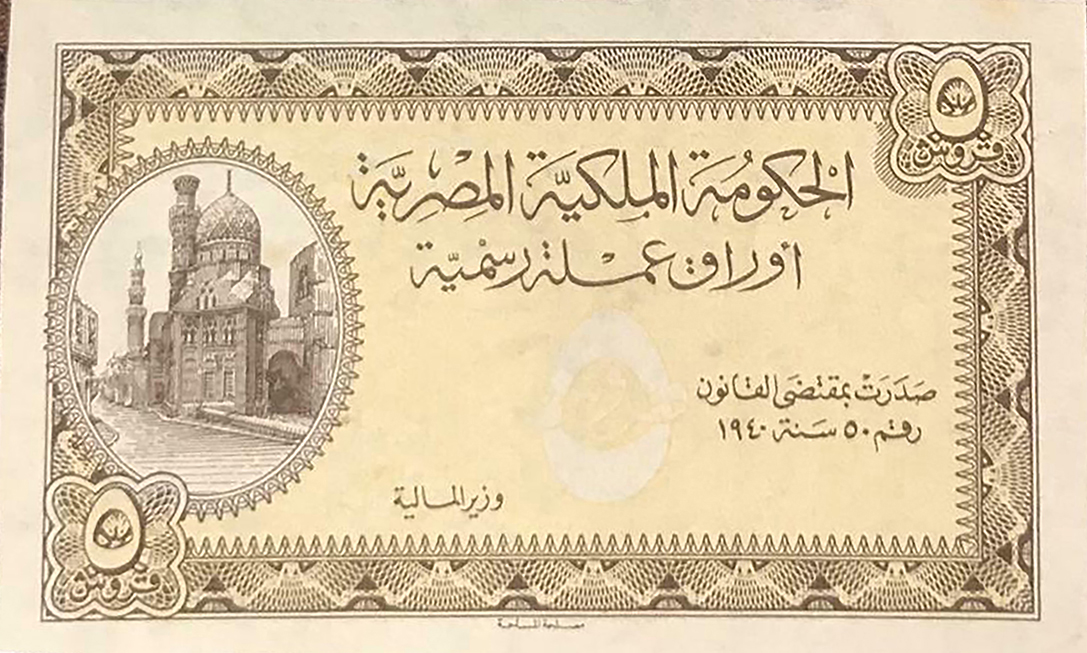 ٥
قروش
الْحكُومَة الملكيَّة المِصْرِيَّة
أوراق عمْلة رسْميَّة
صَدَرَتْ بمقتضَى القانون
رقم ٥٠ سَنة ١٩٤٠
وزير المالية
٥
قروش
مصلحة المساحة